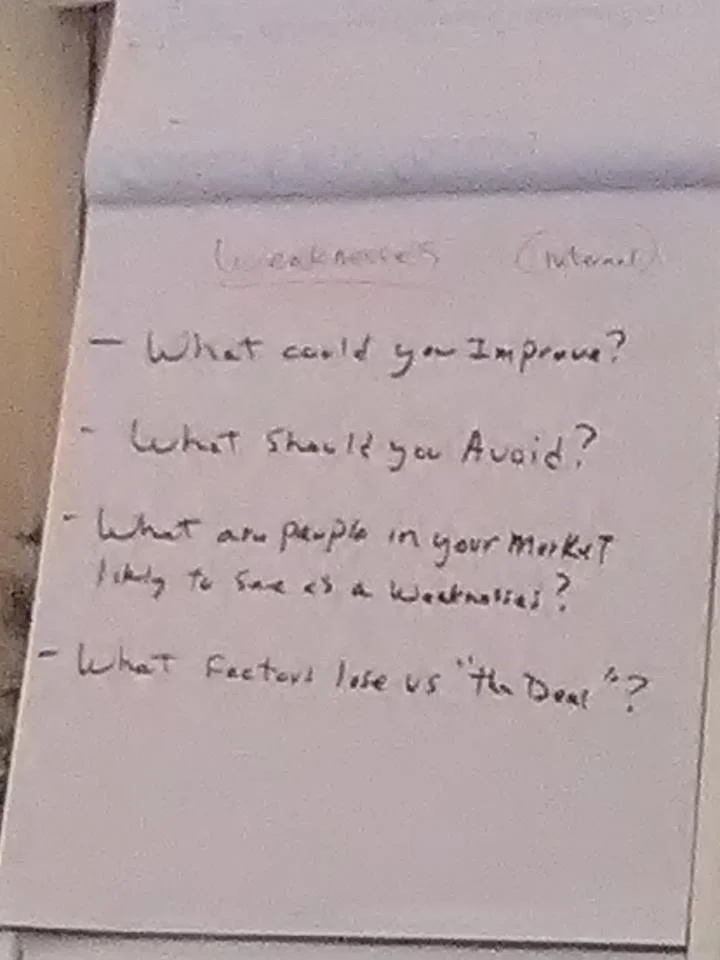 Weaknesses (internal)
- What could you Improve?
- What Should you Avoid?
- What are people in your Market
likely to see as a Weaknesses?
- What Factors lose us "The Deal"?